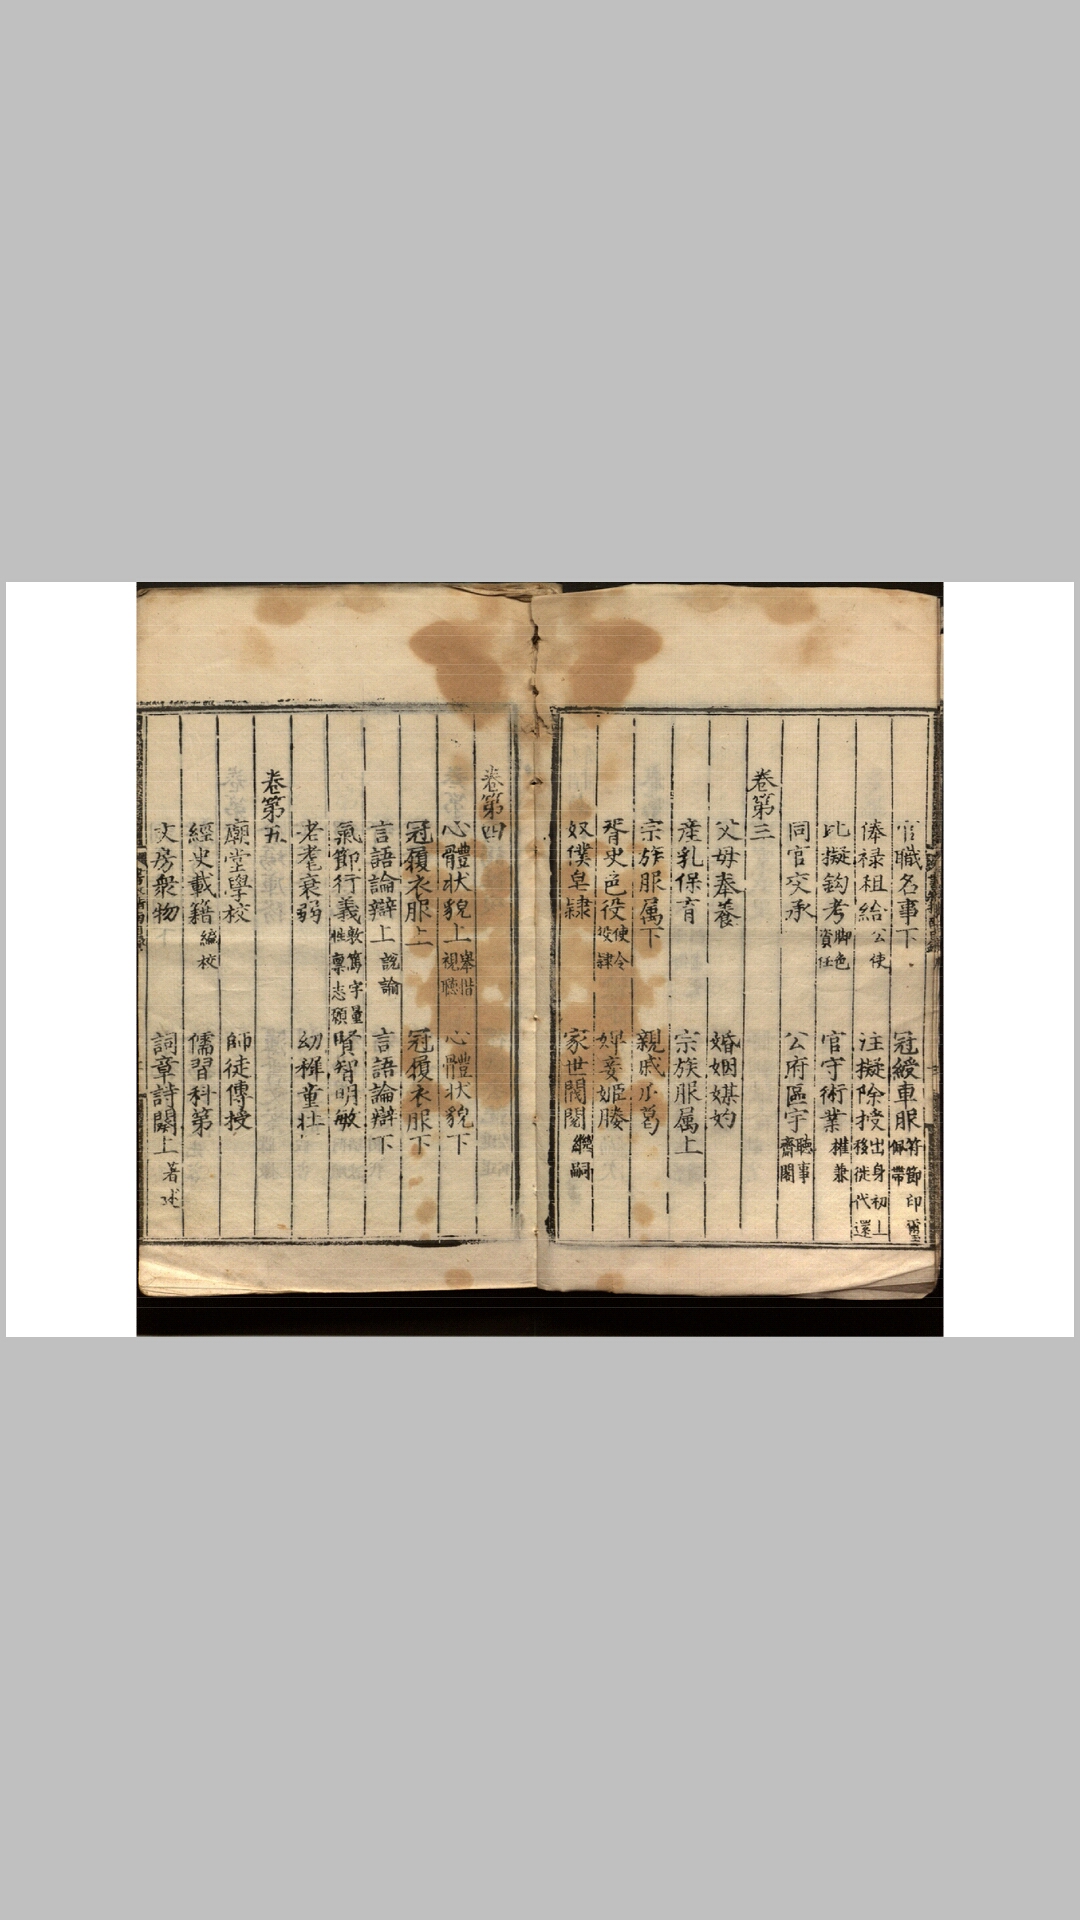 官職名事下 冠綬車服符節印璽佩帶
俸禄租給公使 注擬除授出身初上移徙代還
比擬鈎考脚色資任 官守術業權兼
同官交承 公府區宇聽事齋閣
卷第三
父母奉養 婚姻媒妁
産乳保育 宗族服属上
宗族服属下 親戚瓜葛
胥史邑役使令投肄 婢妾姬媵
奴僕皁隸 家世閥閱繼嗣
卷第四
心體狀貌上舉措視聽 心體狀貌下
冠履衣服上 冠履衣服下
言語論辯上說論 言語論辯下
氣節行義敦篤字量性禀志願 賢智明敏
老耄衰弱 幼稚童壯
卷第五
廟堂學校 師徒傳授
經史載籍編校 儒習科第
文房衆物 詞章詩闋上著述